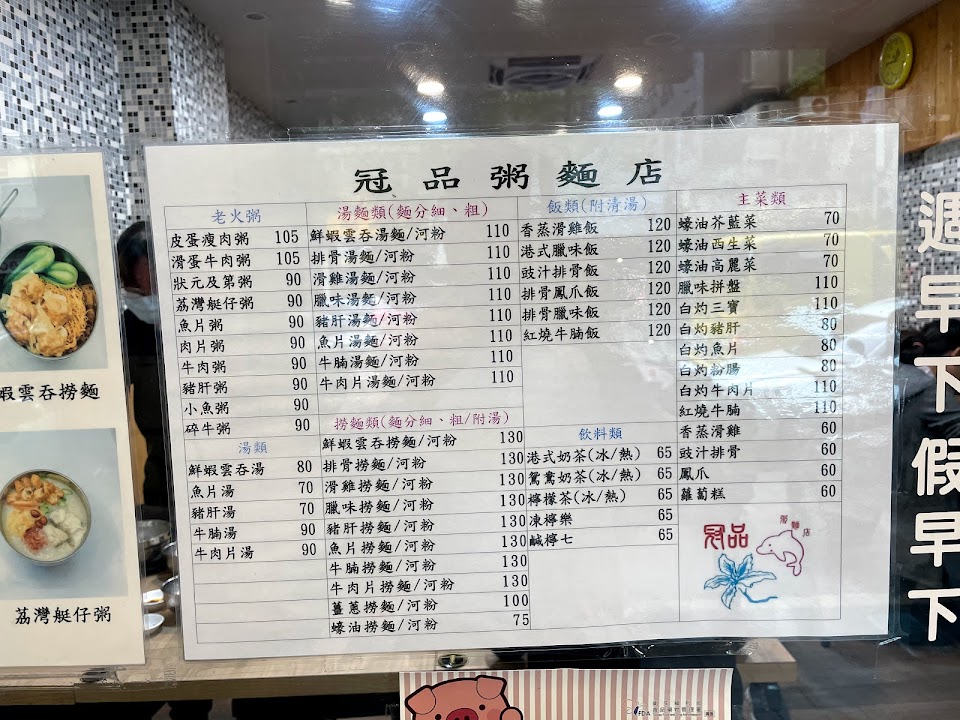 冠品粥麵店
老火粥
皮蛋瘦肉粥 105
滑蛋牛肉粥 105
狀元及第粥 90
荔灣艇仔粥 90
魚片粥 90
肉片粥 90
牛肉粥 90
豬肝粥 90
小魚粥 90
碎牛粥 90
湯類
鮮蝦雲吞湯 80
魚片湯 70
豬肝湯 70
牛腩湯 90
牛肉片湯 90
湯麵類(麵分細、粗)
鮮蝦雲吞湯麵/河粉 110
排骨湯麵/河粉 110
滑雞湯麵/河粉 110
臘味湯麵/河粉 110
豬肝湯麵/河粉 110
魚片湯麵/河粉 110
牛腩湯麵/河粉 110
牛肉片湯麵/河粉 110
撈麵類(麵分細、粗/附湯)
鮮蝦雲吞撈麵/河粉 130
排骨撈麵/河粉 130
滑雞撈麵/河粉 130
臘味撈麵/河粉 130
豬肝撈麵/河粉 130
魚片撈麵/河粉 130
牛腩撈麵/河粉 130
牛肉片撈麵/河粉 130
薑蔥撈麵/河粉 100
蠔油撈麵/河粉 75
飯類(附清湯)
香蒸滑雞飯 120
港式臘味飯 120
豉汁排骨飯 120
排骨鳳爪飯 120
排骨臘味飯 120
紅燒牛腩飯 120
飲料類
港式奶茶(冰/熱) 65
鴛鴦奶茶(冰/熱) 65
檸檬茶(冰/熱) 65
凍檸樂 65
鹹檸七 65
主菜類
蠔油芥藍菜 70
蠔油西生菜 70
蠔油高麗菜 70
臘味拼盤 110
白灼三寶 110
白灼豬肝 80
白灼魚片 80
白灼粉腸 80
白灼牛肉片 110
紅燒牛腩 110
香蒸滑雞 60
豉汁排骨 60
鳳爪 60
蘿蔔糕 60
冠品
粥麵店
蝦雲吞撈麵
荔灣艇仔粥
週早下假早下
FDA